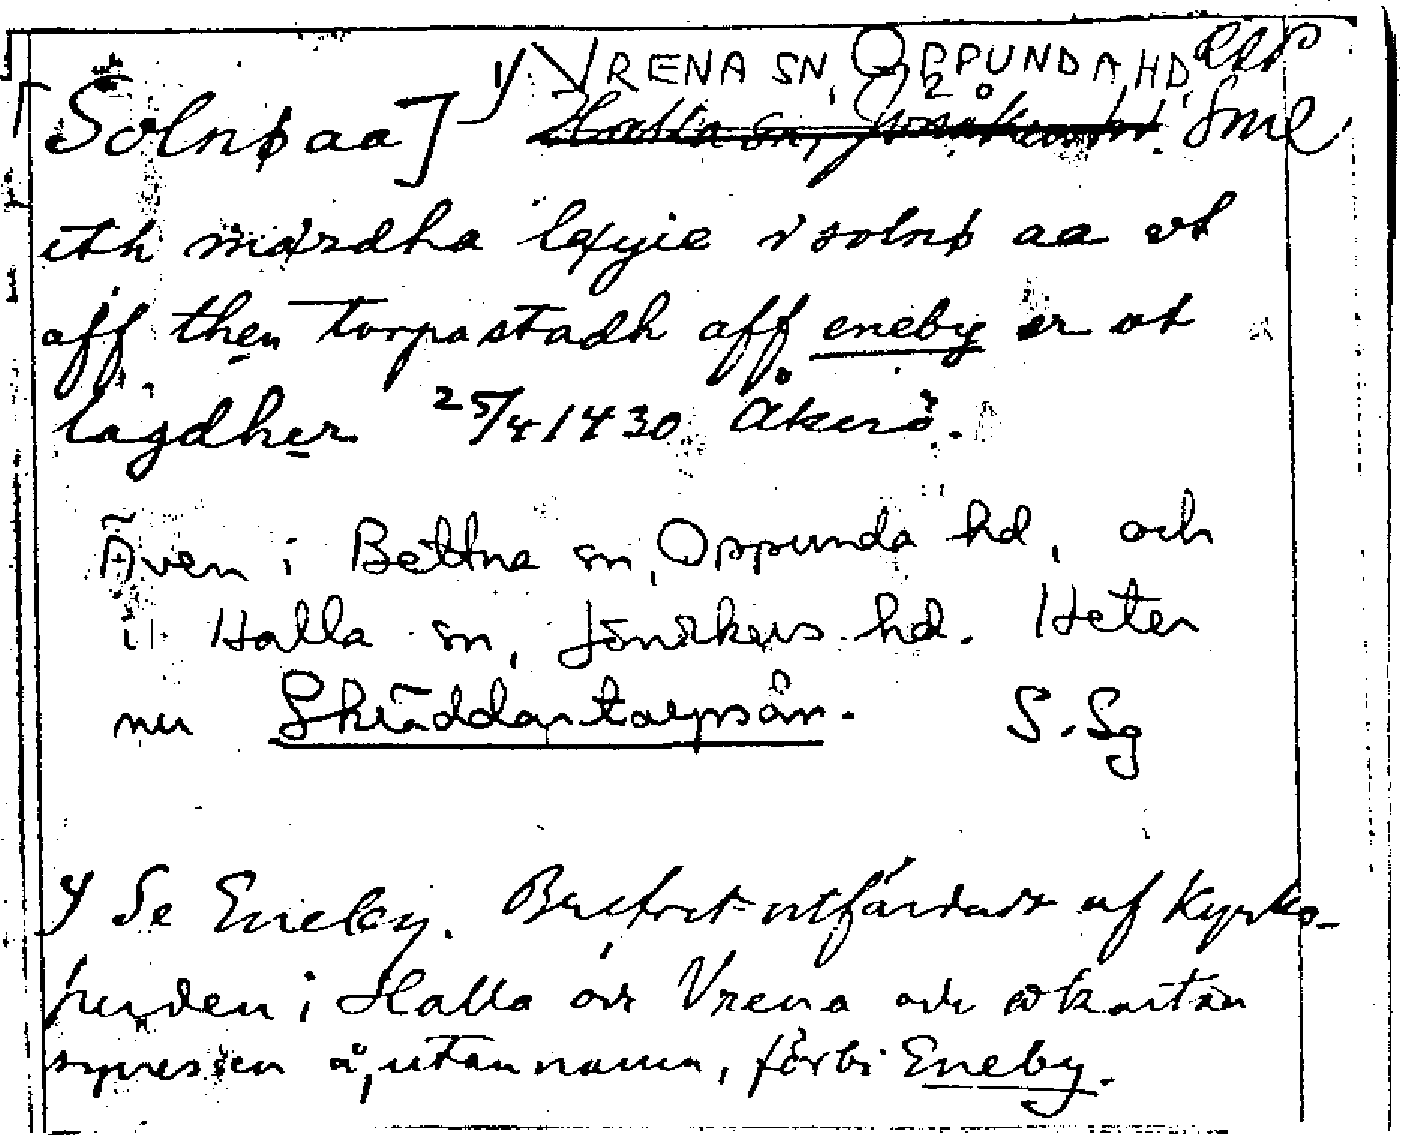 1) VRENA SN, OPPUNDA HD,
[Solnþaa] Halla sn, Jönåkers hd. Sml
eth mardha leyie i solnþ aa vt
aff then torpastadh aff eneby er vt
lagdher 25/4 1430 Åkerö.
Även i Bettna sn, Oppunda hd, och
i Halla sn, Jönåkers hd. Heter
nu Skräddartorpsån. S. Sg
1) Se Eneby. Brefvet utfärdadt af kyrko-
herden i Halla och Vrena och å kartan
synes en å, utan namn, förbi Eneby.